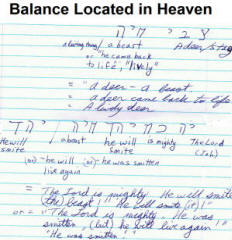 Balance Located in Heaven
צבי חיה
a living thing / a beast A deer / stag
or "he came back
to life, "lively"
= "a deer - a beast
= a deer came back to life
= A lively deer
He will smite a beast he will smite is mighty The Lord (J&L)
(or) - he will live again (or) he was smitten
= The Lord is mighty. He will smite
(the) beast." "He will smite (it)!"
or = "The Lord is mighty. He was
smitten, (but) he will live again
"He was smitten".